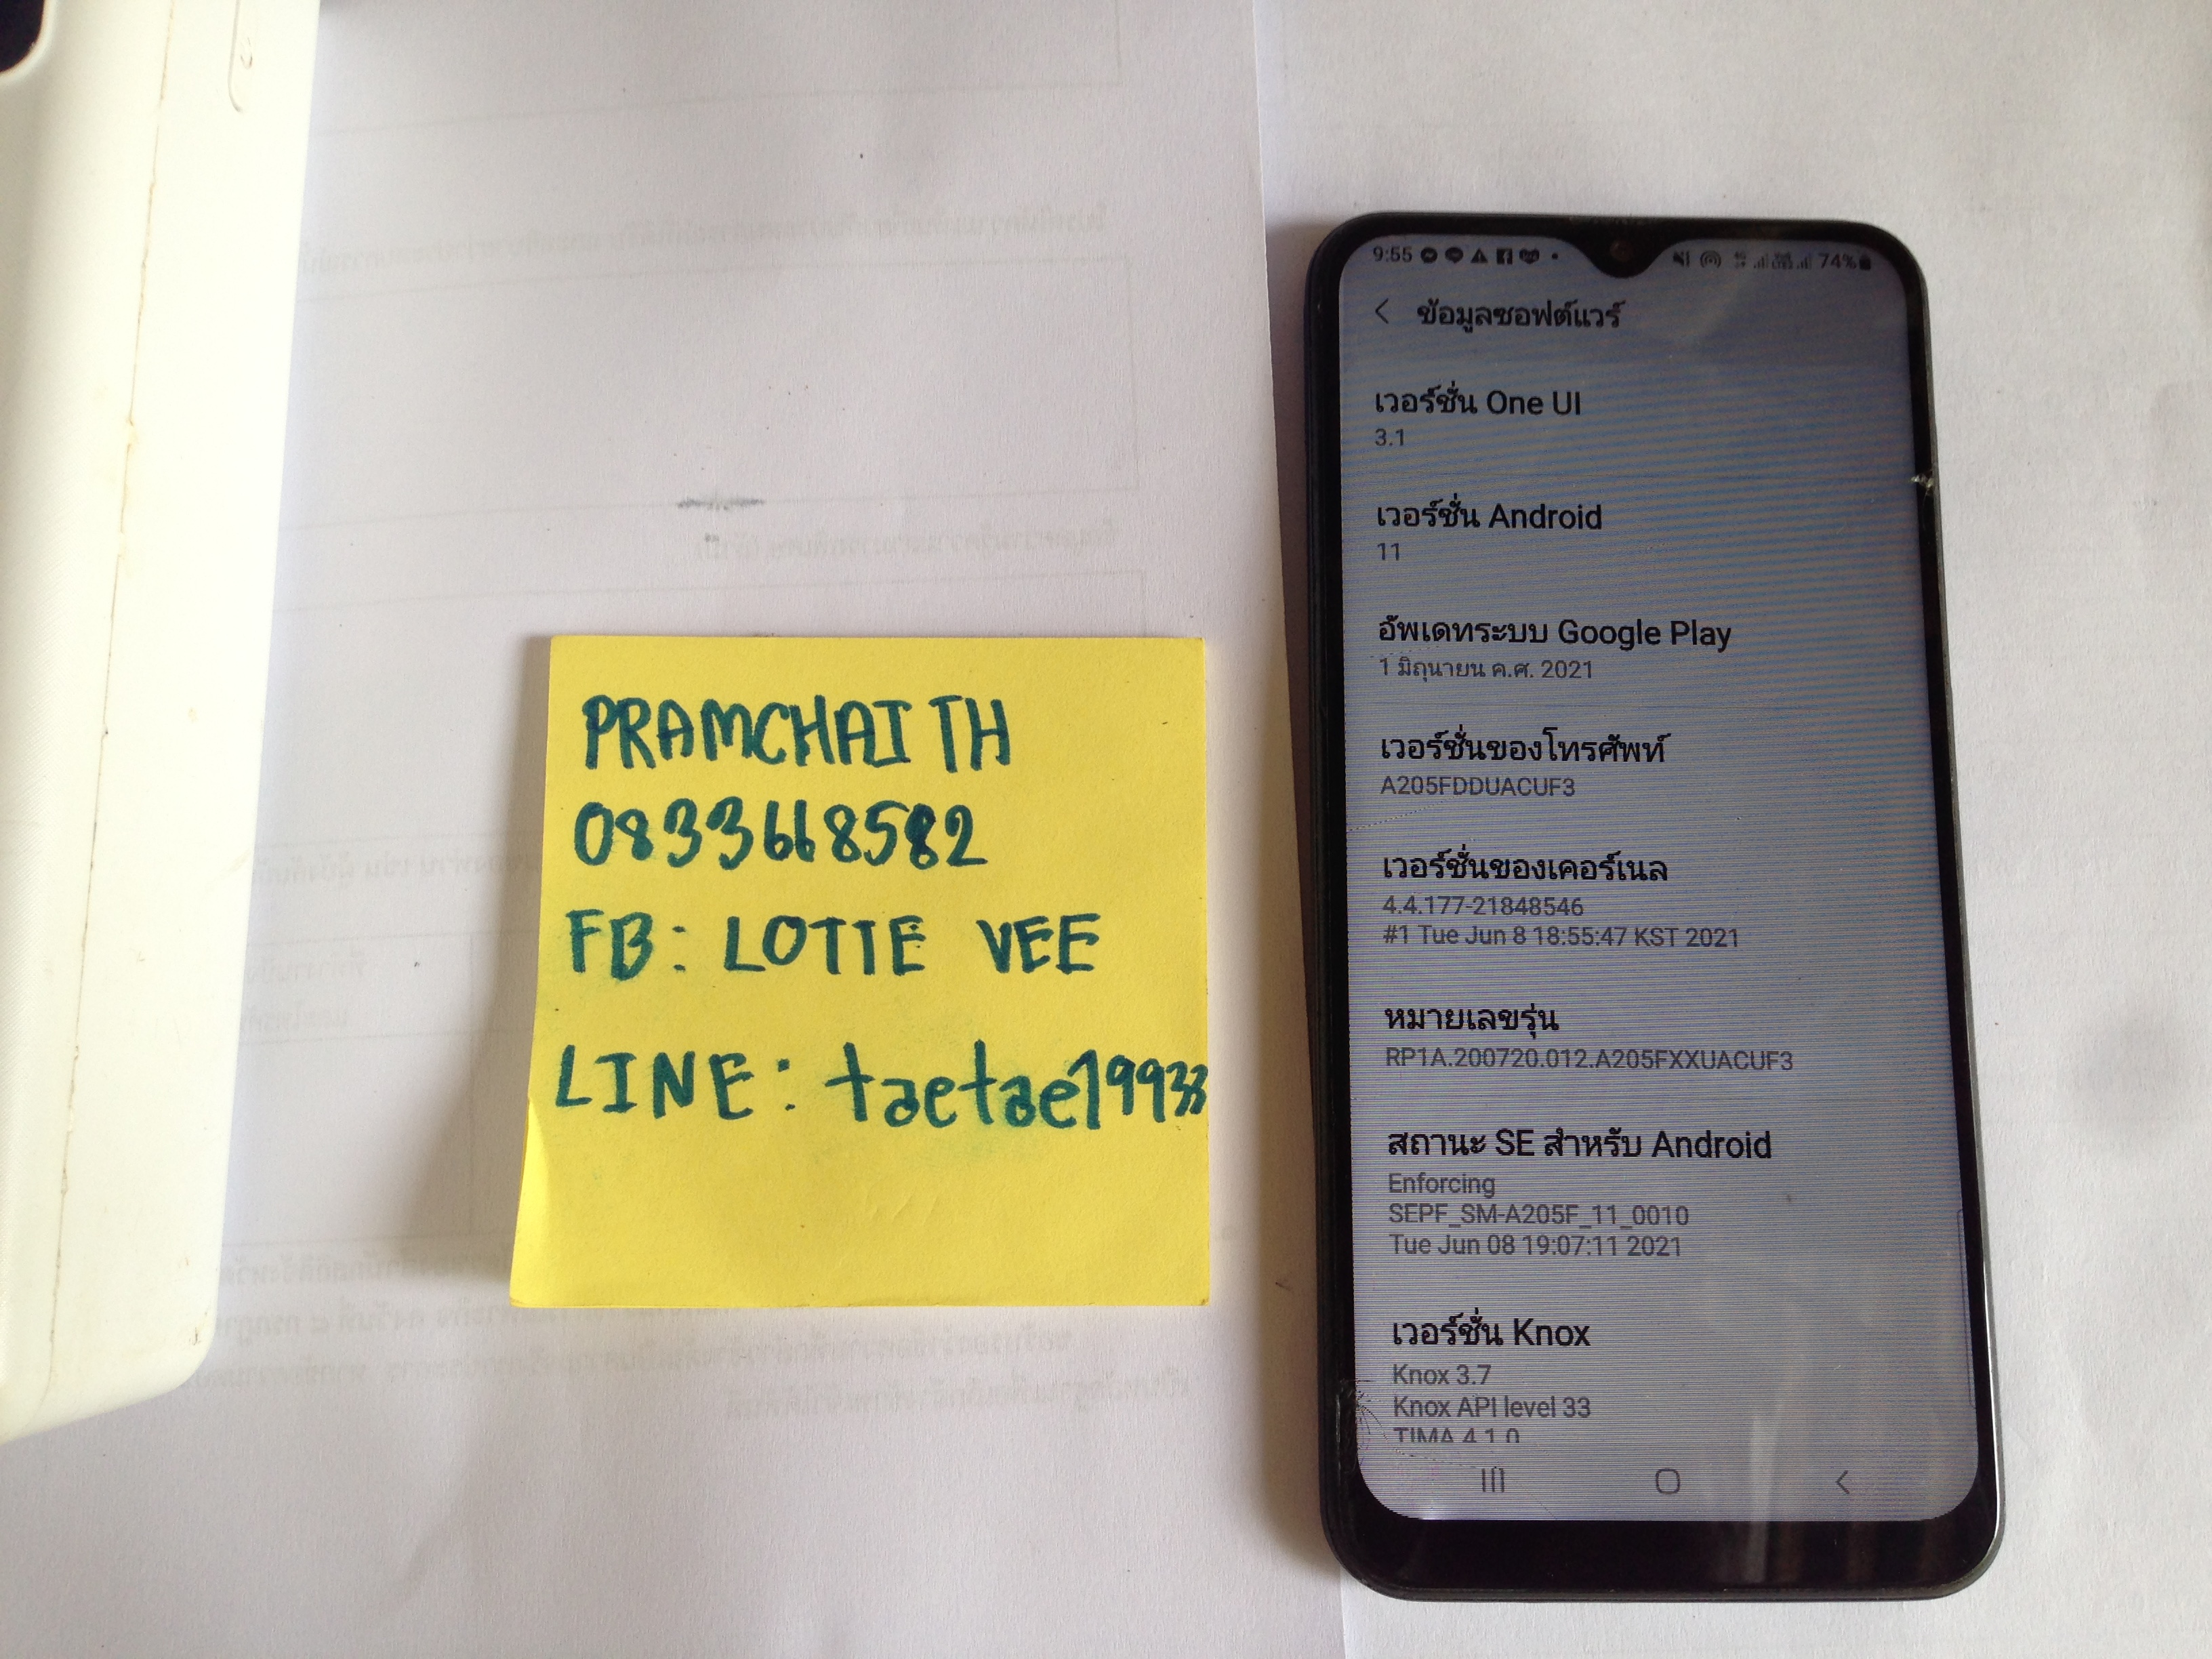 PRAMCHAI TH
0833668582
FB: LOTIE VEE
LINE: taetae19933
9:55
74%
ข้อมูลซอฟต์แวร์
เวอร์ชั่น One UI
3.1
เวอร์ชั่น Android
11
อัพเดทระบบ Google Play
1 มิถุนายน ค.ศ. 2021
เวอร์ชั่นของโทรศัพท์
A205FDDUACUF3
เวอร์ชั่นของเคอร์เนล
4.4.177-21848546
#1 Tue Jun 8 18:55:47 KST 2021
หมายเลขรุ่น
RP1A.200720.012.A205FXXUACUF3
สถานะ SE สำหรับ Android
Enforcing
SEPF_SM-A205F_11_0010
Tue Jun 08 19:07:11 2021
เวอร์ชั่น Knox
Knox 3.7
Knox API level 33
TIMA 4.1.0